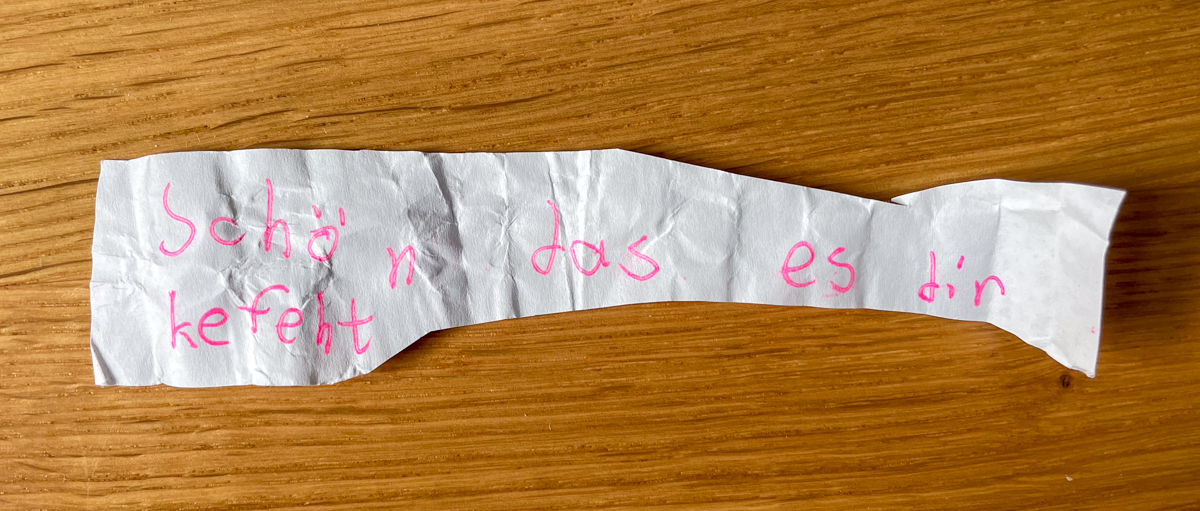 Schön das es din
kefeht